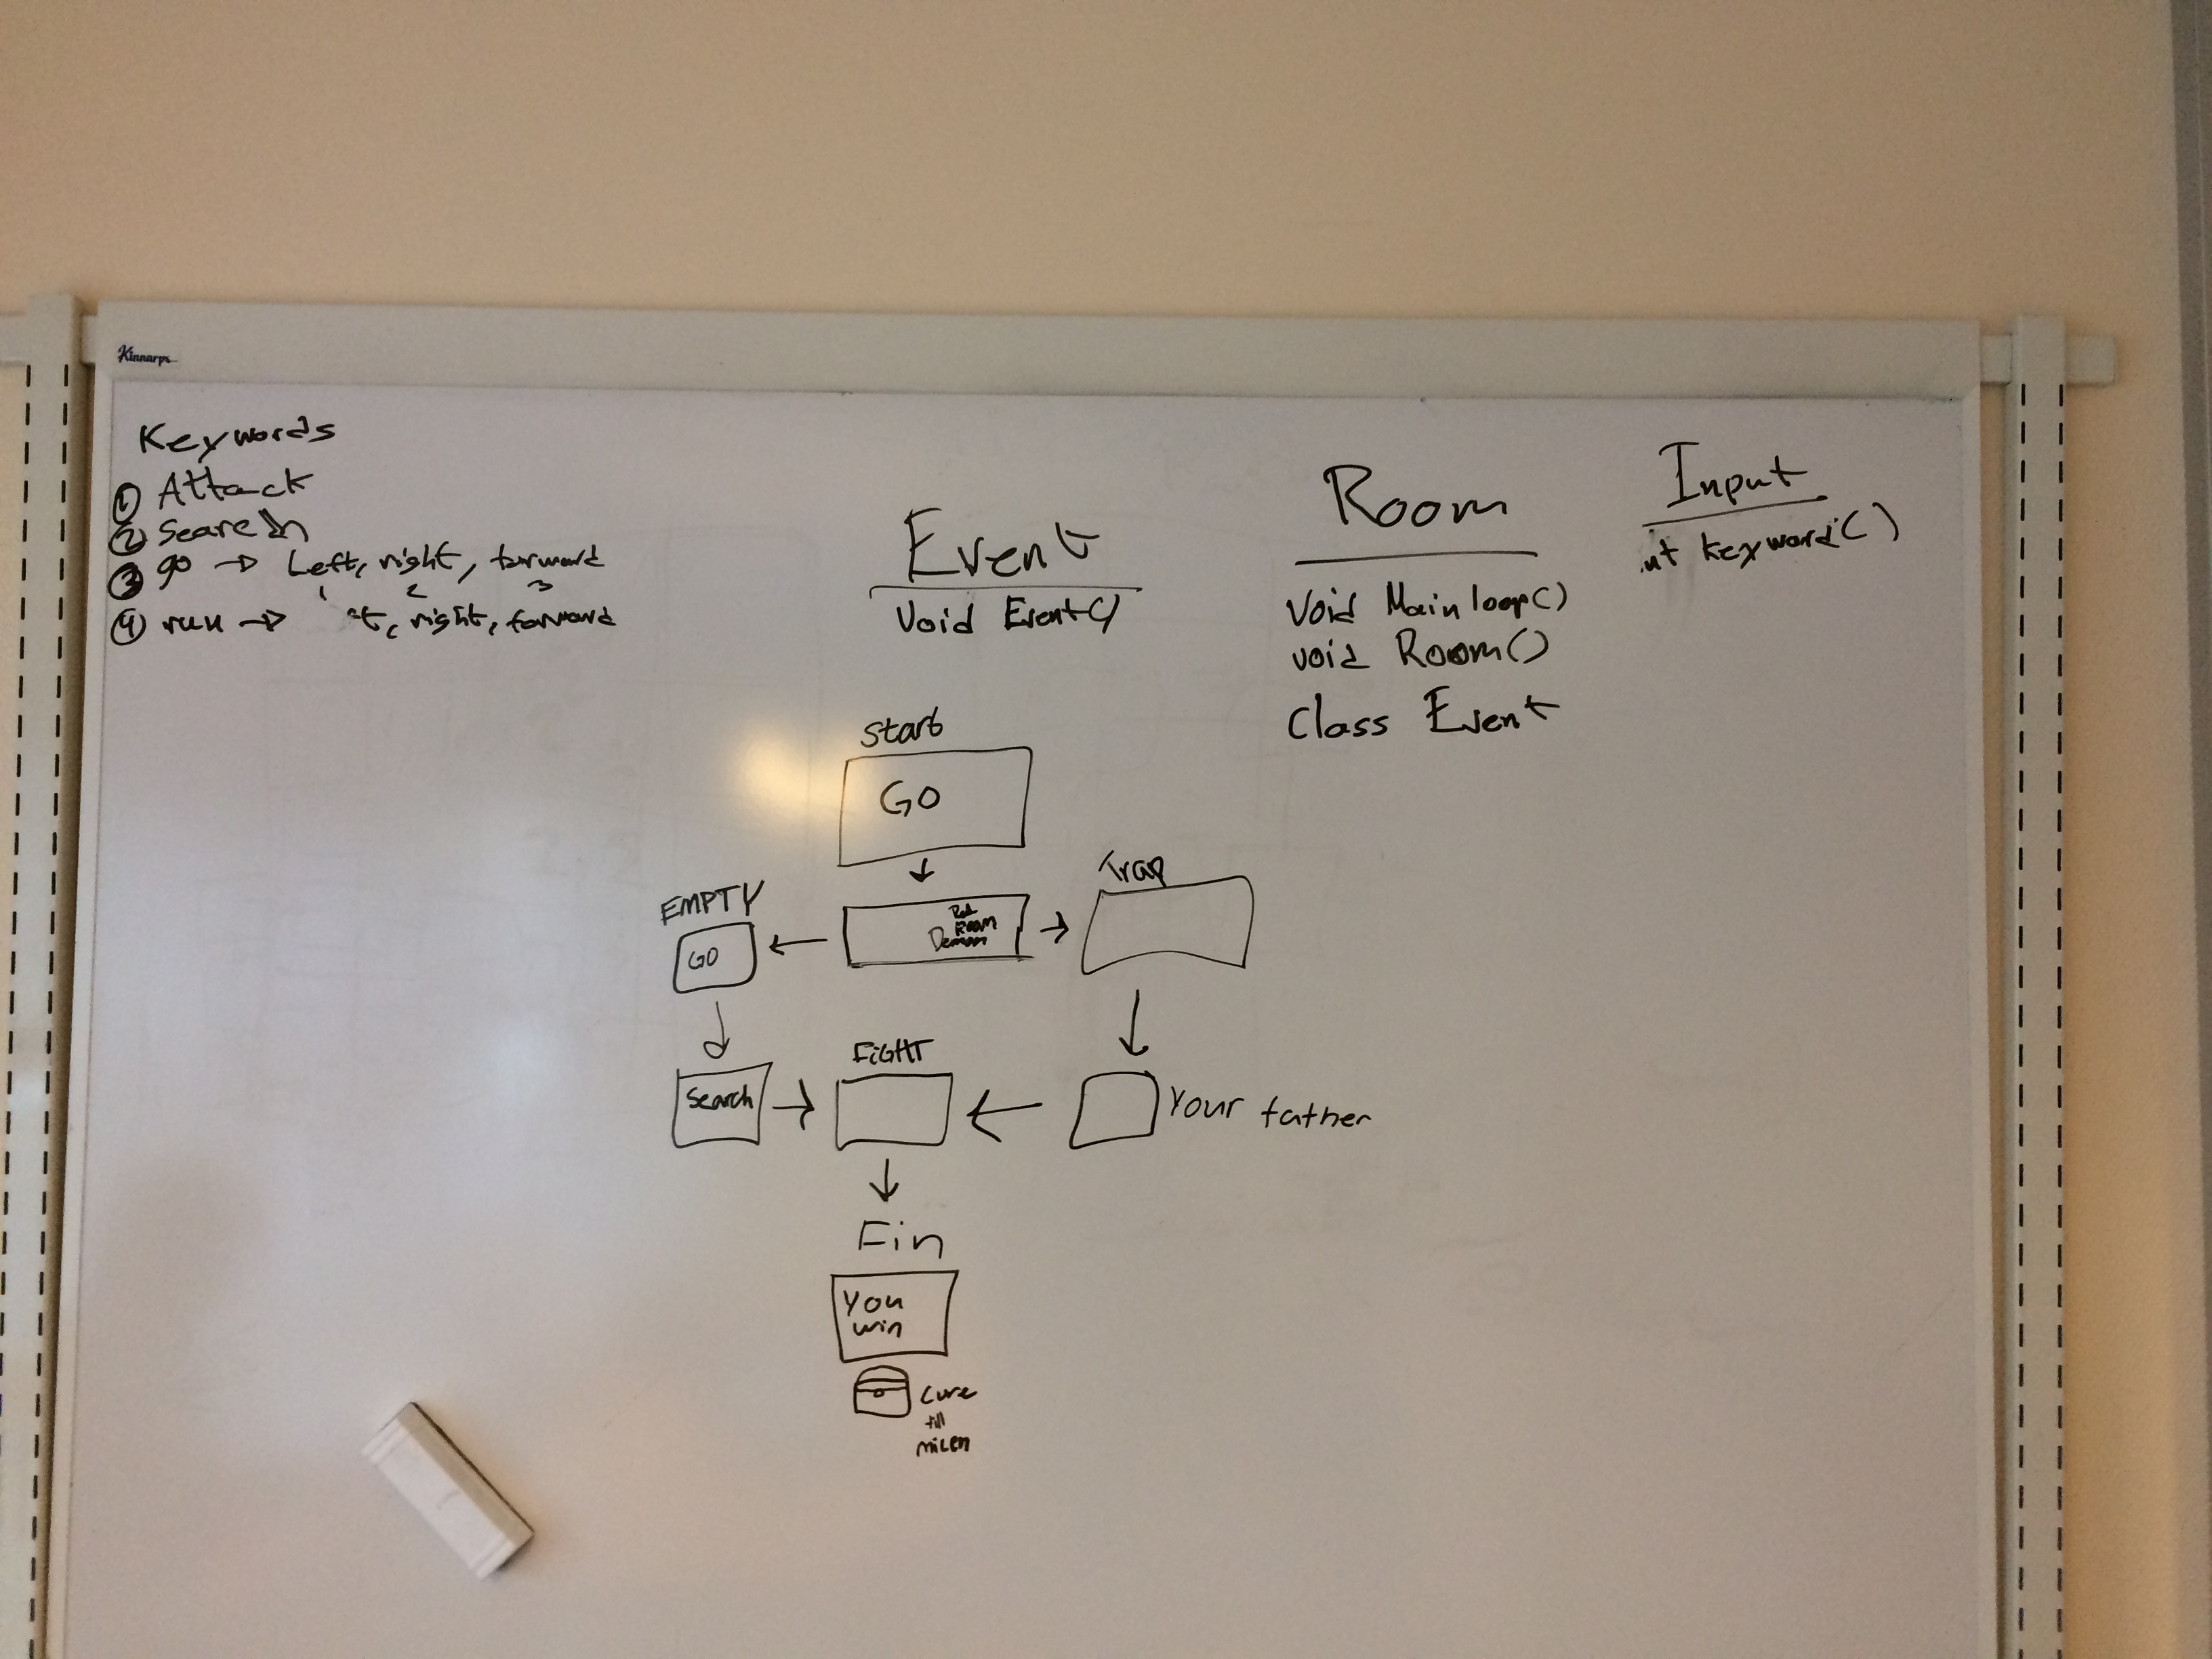 Kinnarps
Keywords
① Attack
② Search
③ go → Left, right, forward
1 2 3
④ run → t, right, forward
Event
Void Event()
Room
Void Mainloop()
void Room()
Class Event
Input
nt keyword()
Start
GO
EMPTY
GO
Room
Demon
Trap
Search
FiGHT
Your father
Fin
You
win
Cure
till